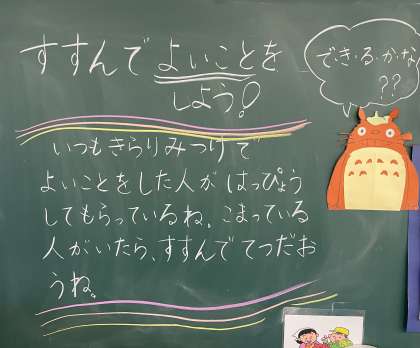 すすんでよいことを
しよう!
で・き・る・か・な
??
いつもきらりみつけで
よいことをした人が はっぴょう
してもらっているね。こまっている
人がいたら、すすんで てつだお
うね。